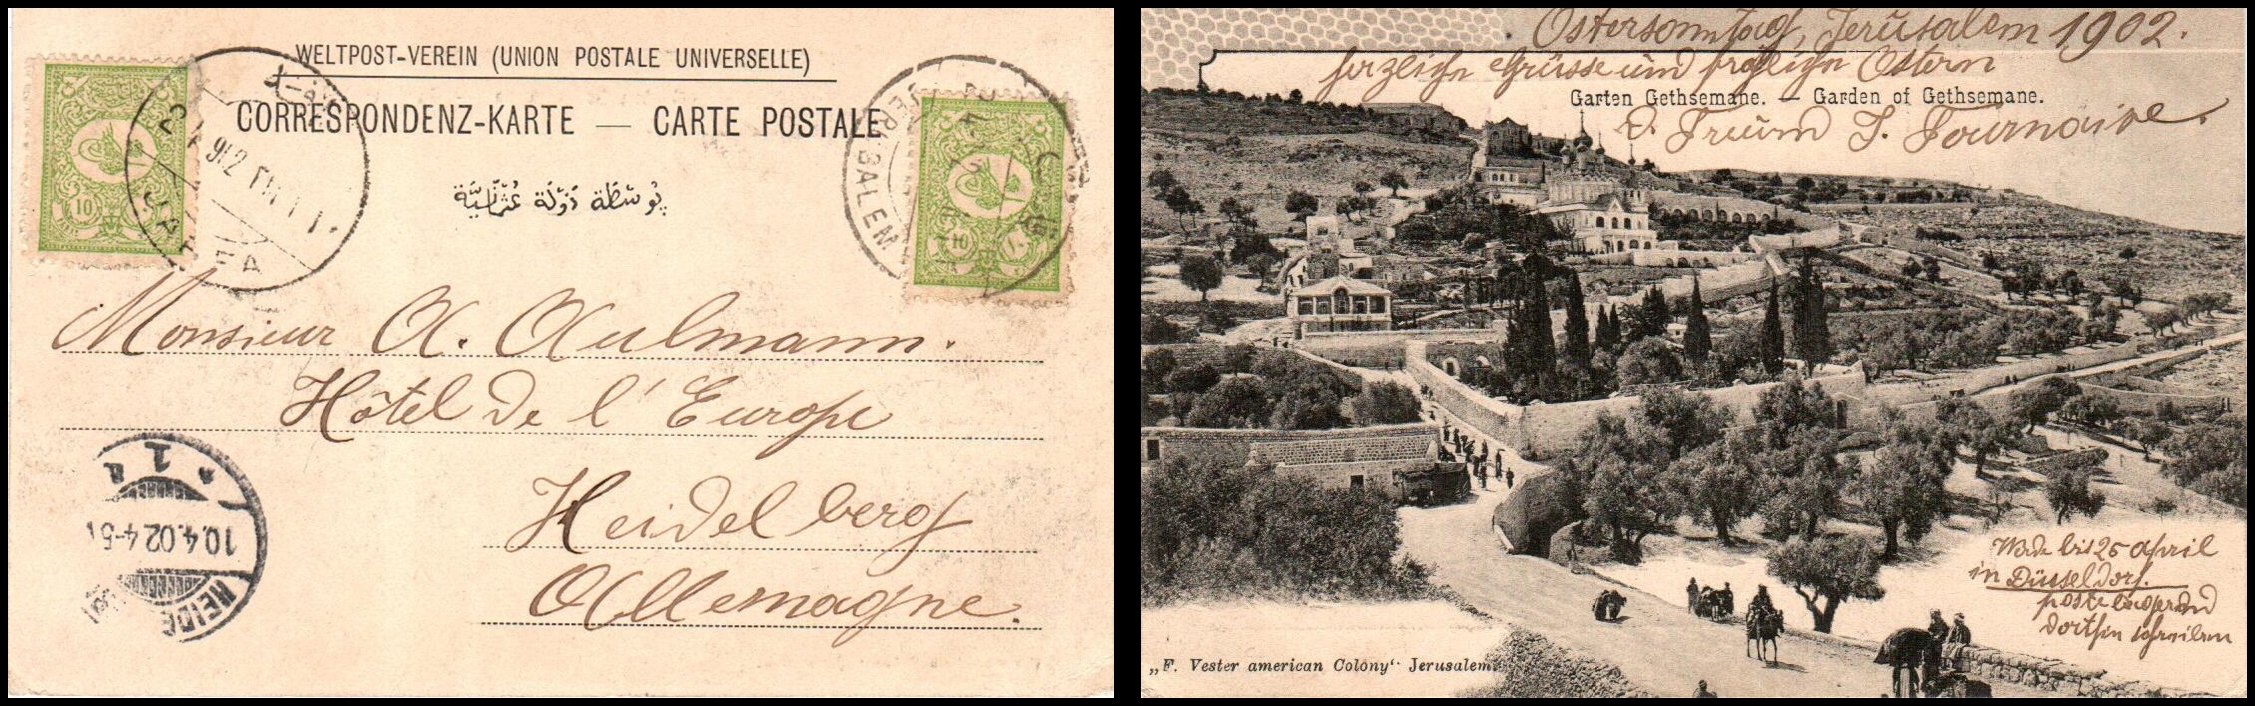 WELTPOST-VEREIN (UNION POSTALE UNIVERSELLE)
CORRESPONDENZ-KARTE — CARTE POSTALE
پُوسْطَهٔ دَوْلَة عُثْمَانِيَّة
10
10 ١٠
JERUSALEM
Monsieur A. Aulmann.
Hôtel de l'Europe
Heidelberg
Allemagne.
10.4.02 4-5
HEIDE
Ostersonntag, Jerusalem 1902.
herzliche Grüsse und fröhliche Ostern
Garten Gethsemane. — Garden of Gethsemane.
d. Freund J. Tournaire.
Werde bis 25 April
in Düsseldorf.
postelagernd
dorthin schreiben
„F. Vester american Colony“ Jerusalem.